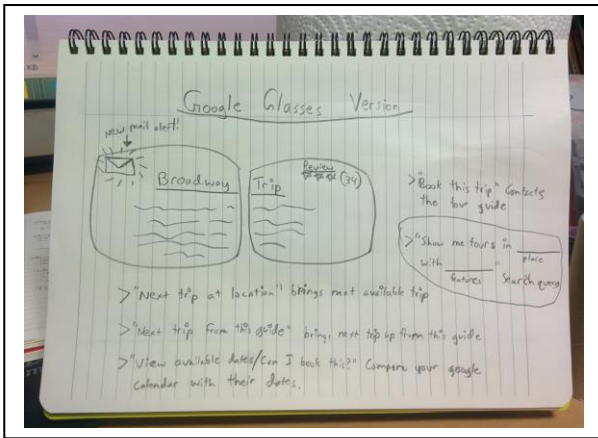 Google Glasses Version
new mail alert!
Broadway
Trip
Review
(34)
>"Book this trip" Contacts
the tour guide
>"Show me tours in ____
place
with ____" Search query
features
>"Next trip at location" brings next available trip
>"Next trip from this guide" brings next trip up from this guide
>"View available dates/Can I book this?" Compare your google
calendar with their dates.